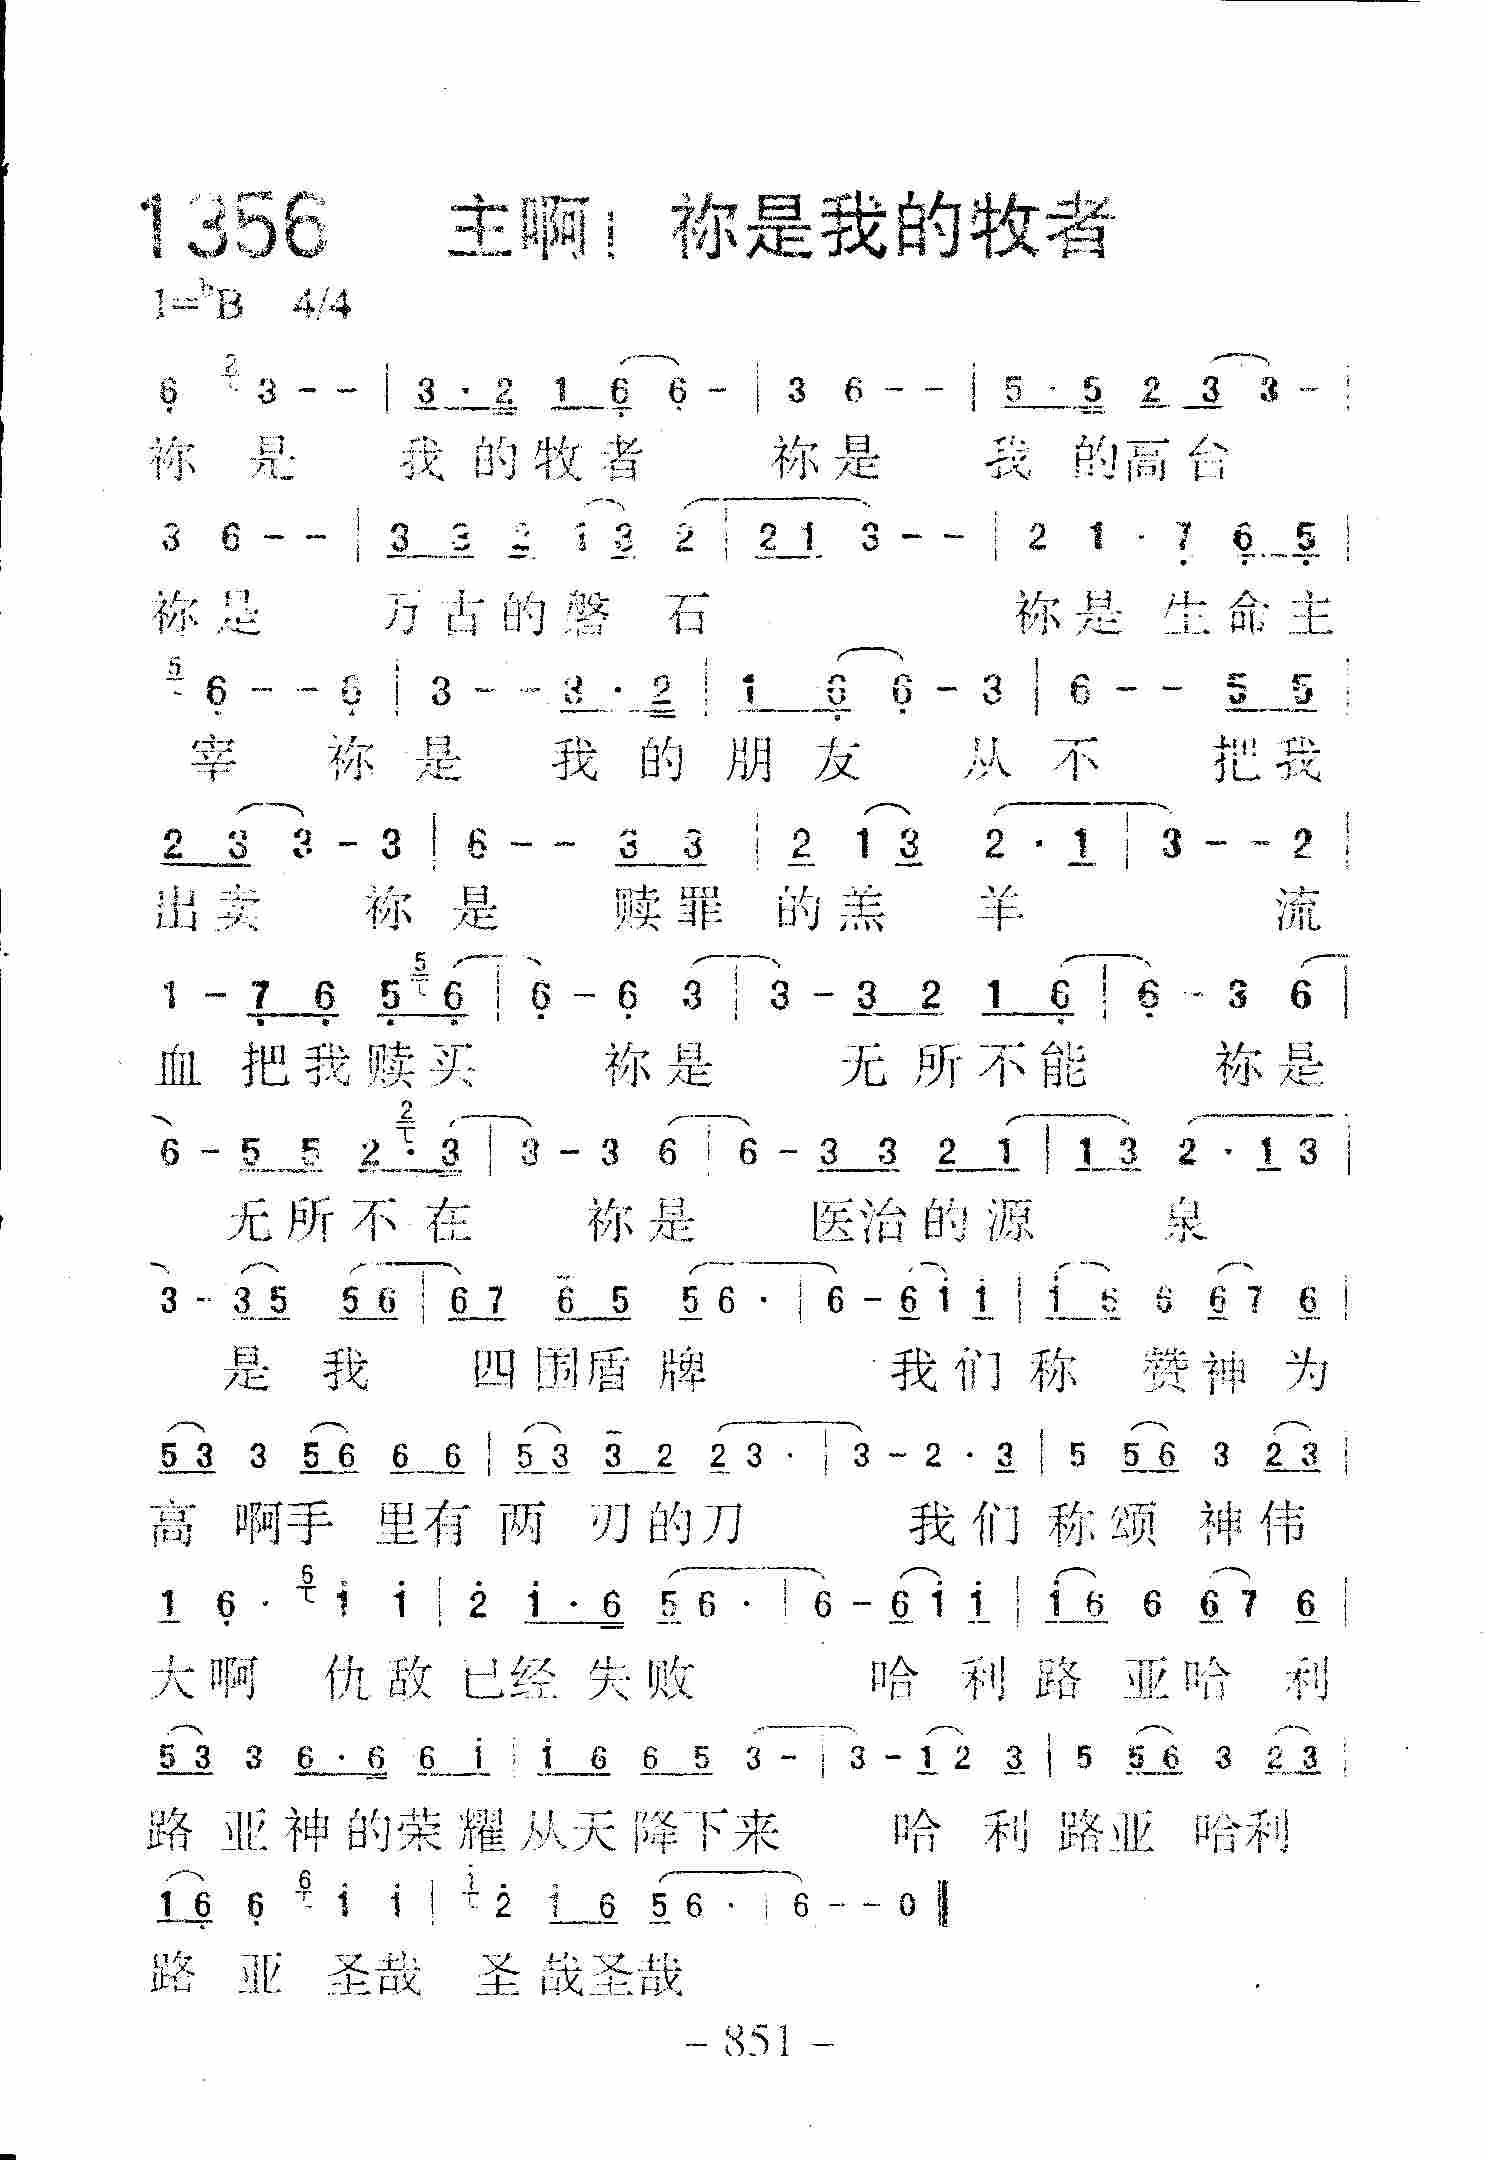 1356 主啊！祢是我的牧者
1=♭B 4/4
6 2 3 - - | 3 · 2 1 6 6 - | 3 6 - - | 5 · 5 2 3 3 - |
祢 是 我 的 牧 者 祢 是 我 的 高 台
3 6 - - | 3 3 2 1 3 2 | 2 1 3 - - | 2 1 · 7 6 5 |
祢 是 万 古 的 磐 石 祢 是 生 命 主
5 6 - - 6 | 3 - - 3 · 2 | 1 6 6 - 3 | 6 - - 5 5 |
宰 祢 是 我 的 朋 友 从 不 把 我
2 3 3 - 3 | 6 - - 3 3 | 2 1 3 2 · 1 | 3 - - 2 |
出 卖 祢 是 赎 罪 的 羔 羊 流
1 - 7 6 5 5 6 | 6 - 6 3 | 3 - 3 2 1 6 | 6 - 3 6 |
血 把 我 赎 买 祢 是 无 所 不 能 祢 是
6 - 5 5 2 · 2 3 | 3 - 3 6 | 6 - 3 3 2 1 | 1 3 2 · 1 3 |
无 所 不 在 祢 是 医 治 的 源 泉
3 - 3 5 5 6 | 6 7 6 5 5 6 · | 6 - 6 1 1 | 1 6 6 6 7 6 |
是 我 四 围 盾 牌 我 们 称 赞 神 为
5 3 3 5 6 6 6 | 5 3 3 2 2 3 · | 3 - 2 · 3 | 5 5 6 3 2 3 |
高 啊 手 里 有 两 刃 的 刀 我 们 称 颂 神 伟
1 6 · 6 1 1 | 2 1 · 6 5 6 · | 6 - 6 1 1 | 1 6 6 6 7 6 |
大 啊 仇 敌 已 经 失 败 哈 利 路 亚 哈 利
5 3 3 6 · 6 6 1 | 1 6 6 5 3 - | 3 - 1 2 3 | 5 5 6 3 2 3 |
路 亚 神 的 荣 耀 从 天 降 下 来 哈 利 路 亚 哈 利
1 6 6 6 1 1 | 1 2 1 6 5 6 · | 6 - - 0 ‖
路 亚 圣 哉 圣 哉 圣 哉
- 851 -